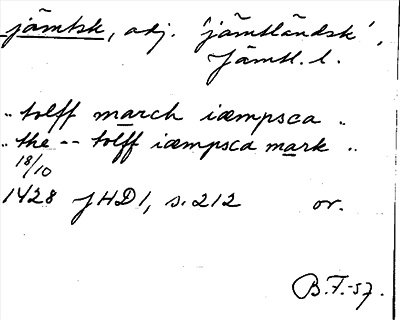 jämtsk, adj. 'jämtländsk',
Jämtl. l.
.. tolff march iæmpsca ..
.. the -- tolff iæmpsca mark ..
18/10
1428 JHD1, s. 212 or.
B.F.-57.